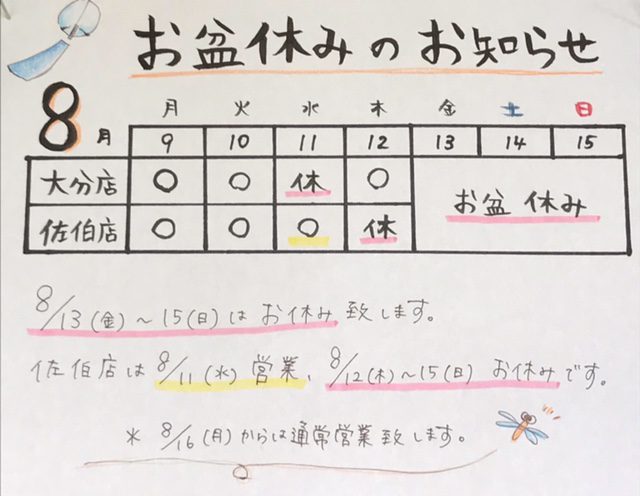 お盆休みのお知らせ
8月
月 火 水 木 金 土 日
9 10 11 12 13 14 15
大分店 ○ ○ 休 ○ お盆休み
佐伯店 ○ ○ ○ 休
8/13(金)～15(日)はお休み致します。
佐伯店は8/11(水)営業、8/12(木)～15(日)お休みです。
* 8/16(月)からは通常営業致します。